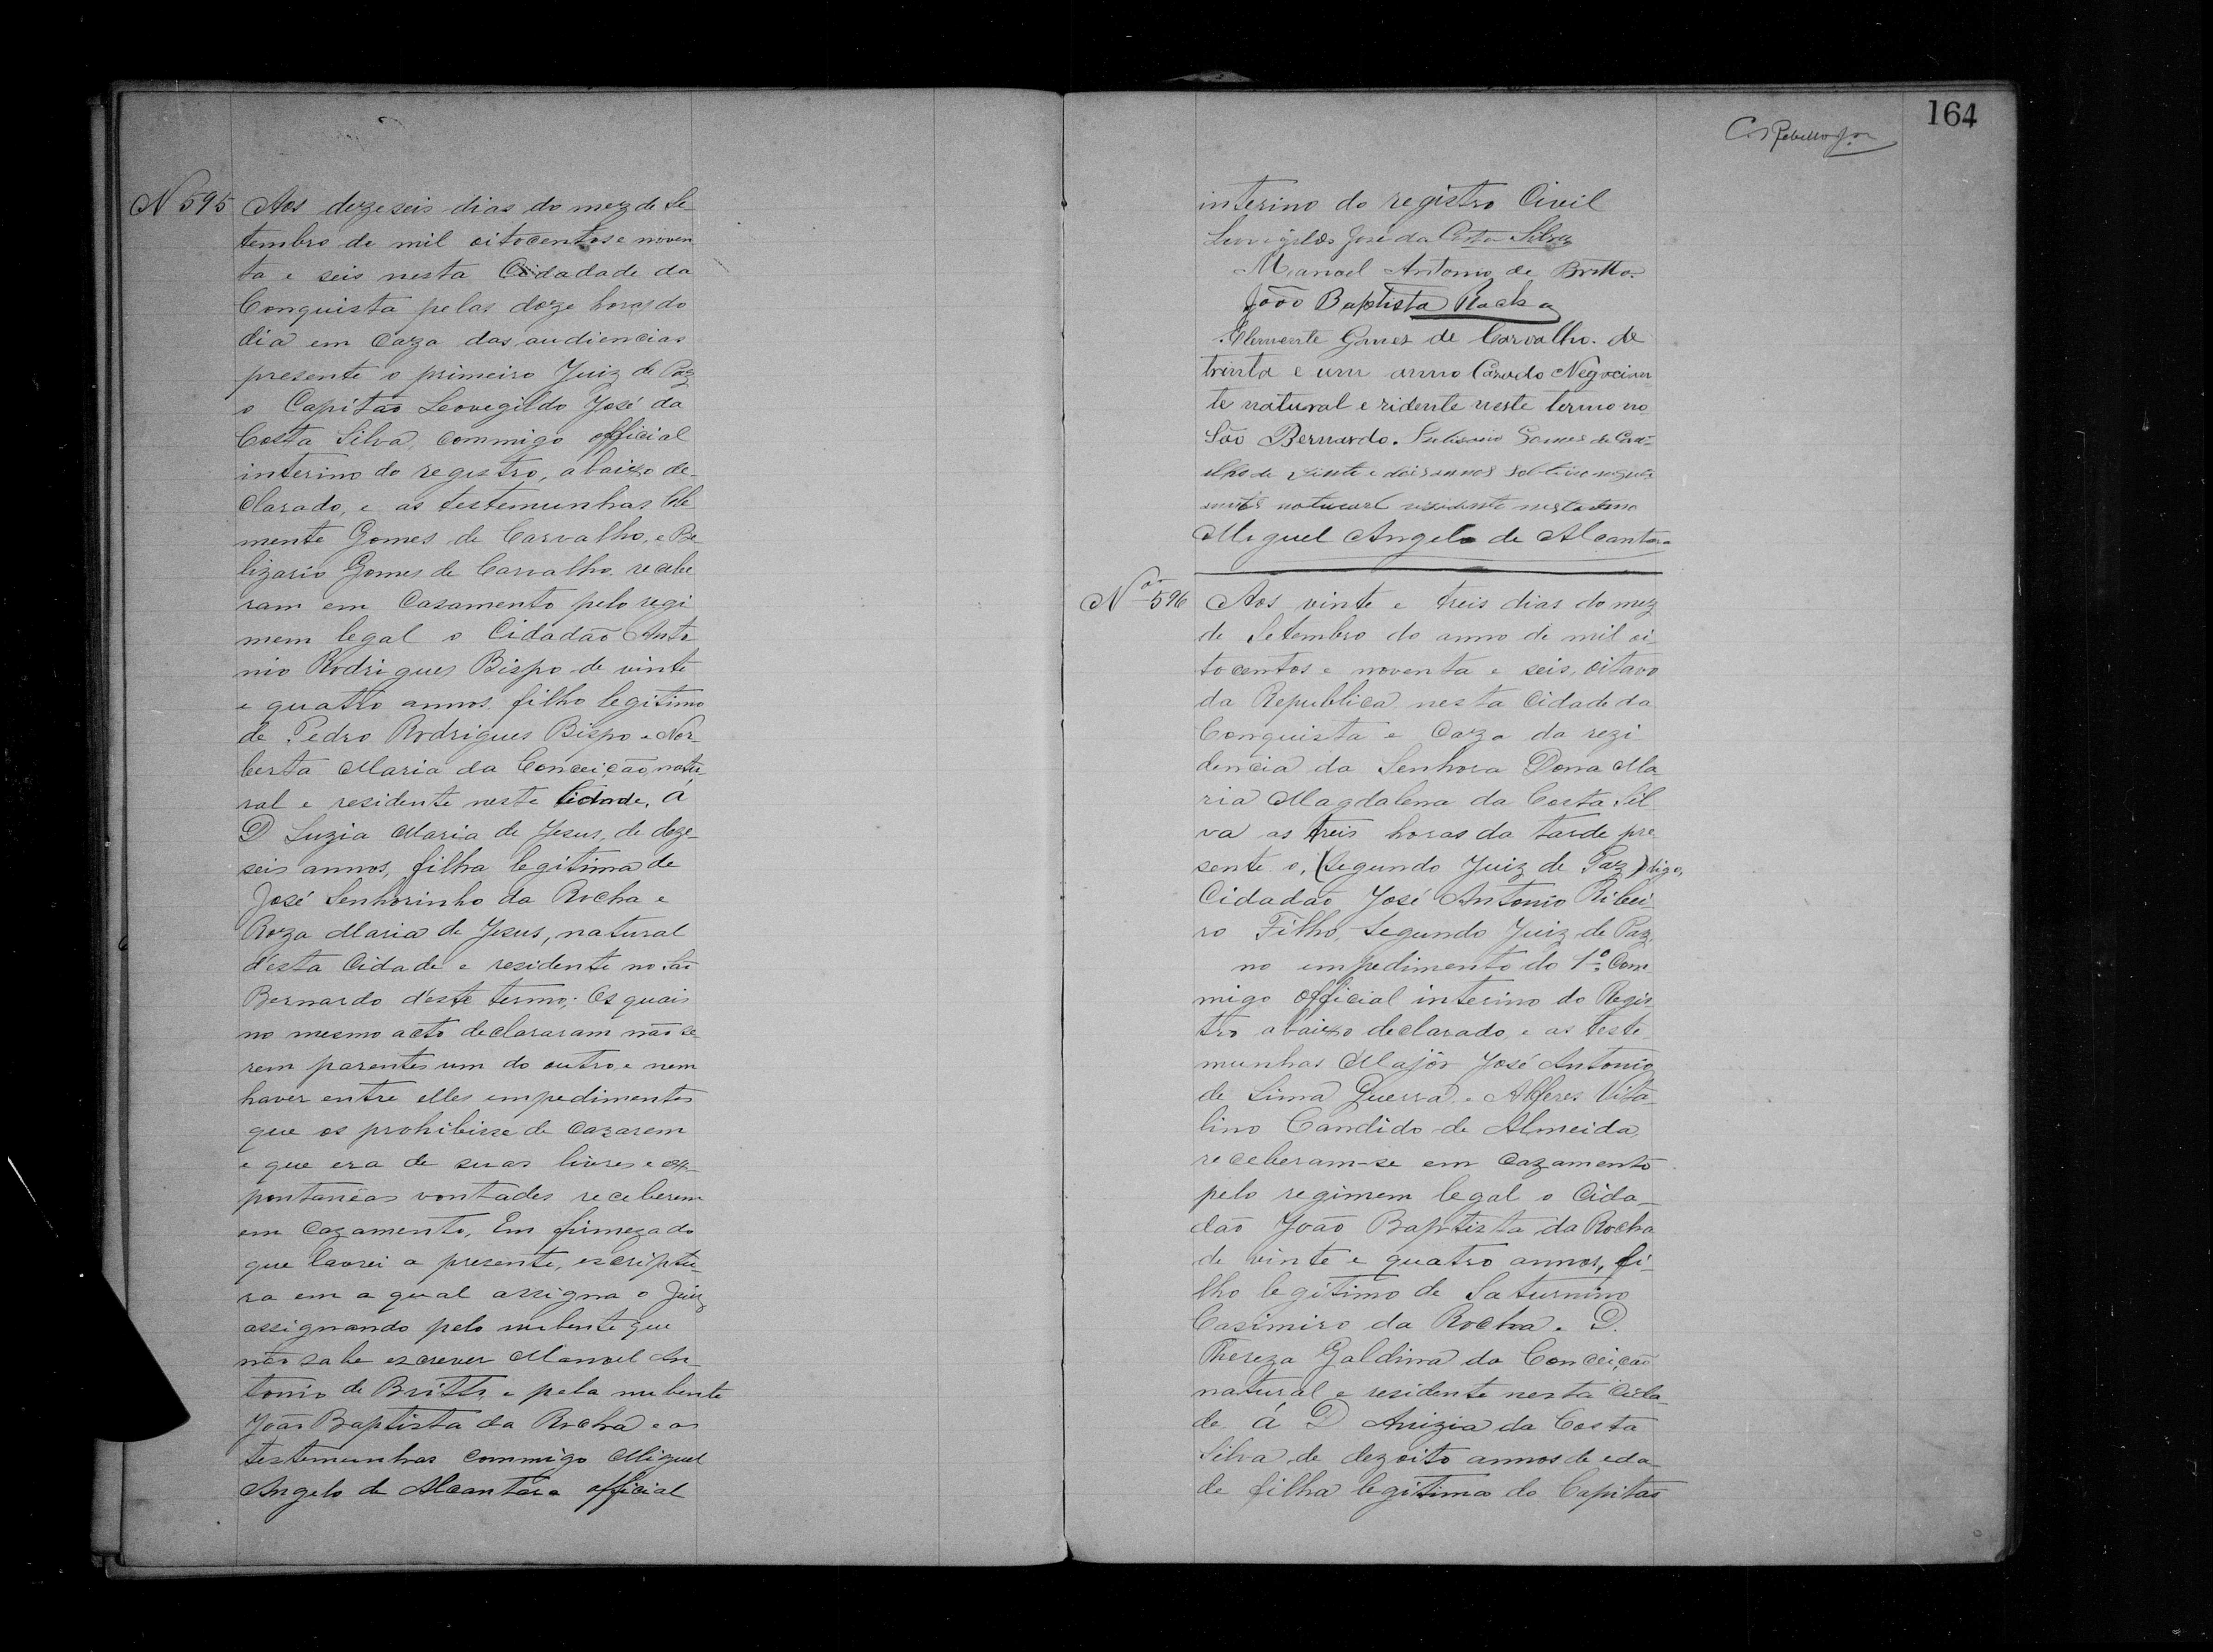 N 595 Aos dezeseis dias do mez de Se
tembro de mil oitocentos e noven
ta e seis nesta Cidadade da
Conquista pelas doze horas do
dia em Caza das audiencias
presente o primeiro Juiz de Paz
o Capitão Leovegildo José da
Costa Silva, commigo official
interino do registro, abaixo de-
clarado, e as testemunhas Cle
mente Gomes de Carvalho, e Be
lizario Gomes de Carvalho. recebe
ram em Casamento pelo regi
mem legal o Cidadão Anto
nio Rodrigues Bispo de vinte
e quatro annos, filho legitimo
de Pedro Rodrigues Bispo e Nor-
berta Maria da Conceição, natu-
ral e residente neste Cidade, á
D Luzia Maria de Jesus, de deze-
seis annos, filha legitima de
José Senhorinho da Rocha e
Roza Maria de Jesus, natural
d'esta Cidade e residente no São
Bernardo d'este termo; Os quais
no mesmo acto declararam não se
rem parentes um do outro, e nem
haver entre elles empedimentos
que os prohibisse de Cazarem
e que era de suas livres e es-
pontanêas vontades receberem
em Cazamento, Em firmeza do
que lavrei a presente, escriptu-
ra em a qual assigna o Juiz
assignando pelo nubente que
não sabe escrever Manoel An-
tonio de Britto, e pela nubente
João Baptista da Rocha e as
testemunhas commigo Miguel
Angelo de Alcantara official
164
interino do registro Civil
Leovegildo José da Costa Silva
Manoel Antonio de Britto.
João Baptista Rocha
Clemente Gomes de Carvalho. de
trinta e um anno Cazado Negocian
te natural e ridente neste termo no
São Bernardo. Gomes de Carv-
alho de vinte e dois annos solteiro
natural residente neste termo
Miguel Angelo de Alcantara
No 596 Aos vinte e treis dias do mez
de Setembro do anno de mil oi
tocentos e noventa e seis, oitavo
da Republica nesta Cidade da
Conquista e Caza da rezi
dencia da Senhora Dona Ma
ria Magdalena da Costa Sil
va as treis horas da tarde pre
sente o, (Segundo Juiz de Paz) digo,
Cidadão José Antonio Ribei
ro Filho, Segundo Juiz de Paz,
no empedimento do 1º Com
migo official interino do Regis
tro abaixo declarado, e as teste
munhas Major José Antonio
de Lima Guerra e Alferes Vita-
lino Candido de Almeida,
receberam-se em Cazamento
pelo regimem legal o Cida-
dão João Baptista da Rocha
de vinte e quatro annos, fi-
lho legitimo de Saturnino
Casimiro da Rocha e D.
Thereza Galdina da Conceição
natural e residente nesta Cida-
de á D Anizia da Costa
Silva de dezoito annos de eda-
de filha legitima do Capitão